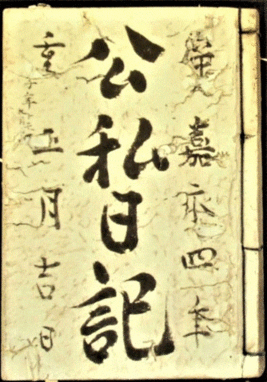 嘉永四年
公私日記
正月吉日